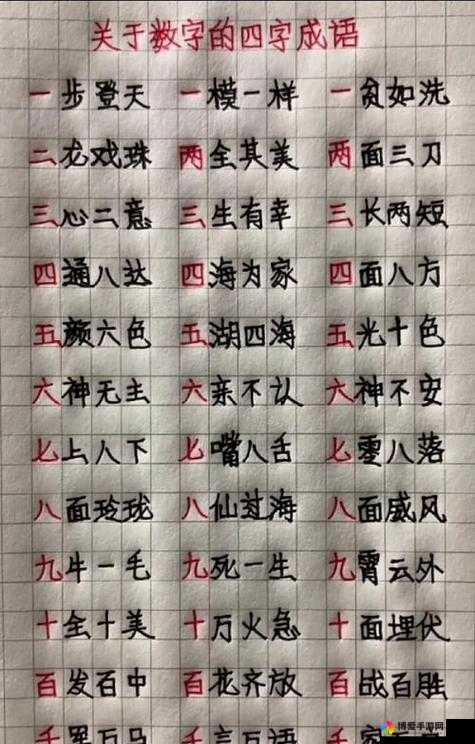 关于数字的四字成语
一步登天 一模一样 一贫如洗
二龙戏珠 两全其美 两面三刀
三心二意 三生有幸 三长两短
四通八达 四海为家 四面八方
五颜六色 五湖四海 五光十色
六神无主 六亲不认 六神不安
七上八下 七嘴八舌 七零八落
八面玲珑 八仙过海 八面威风
九牛一毛 九死一生 九霄云外
十全十美 十万火急 十面埋伏
百发百中 百花齐放 百战百胜
千军万马 千言万语 千家
博爱手游网